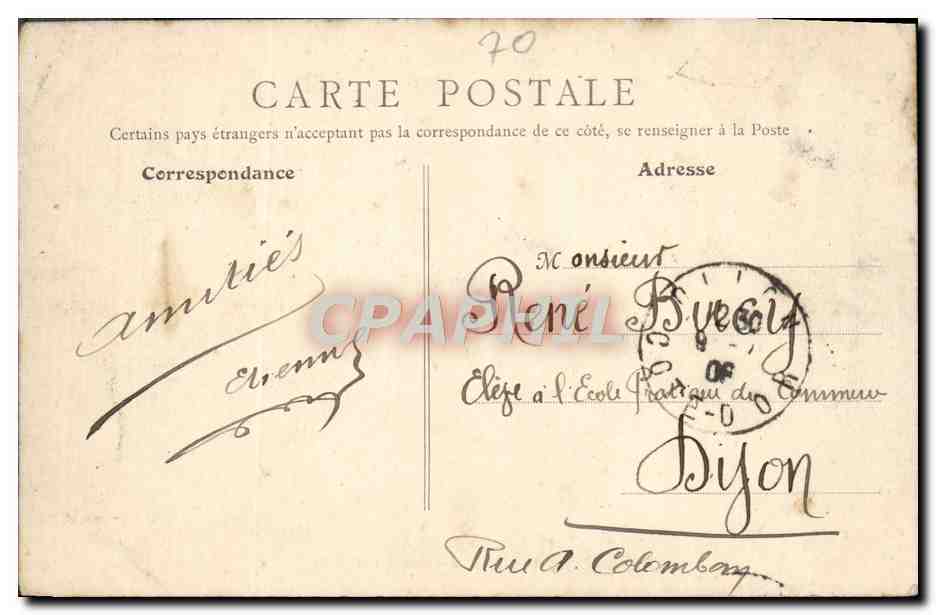 70
CARTE POSTALE
Certains pays étrangers n'acceptant pas la correspondance de ce côté, se renseigner à la Poste
Correspondance
Adresse
amitiés
Etienne
Monsieur
René
Elève à l'Ecole Pratique du Commerce
Dijon
Rue A.
CPAPHIL